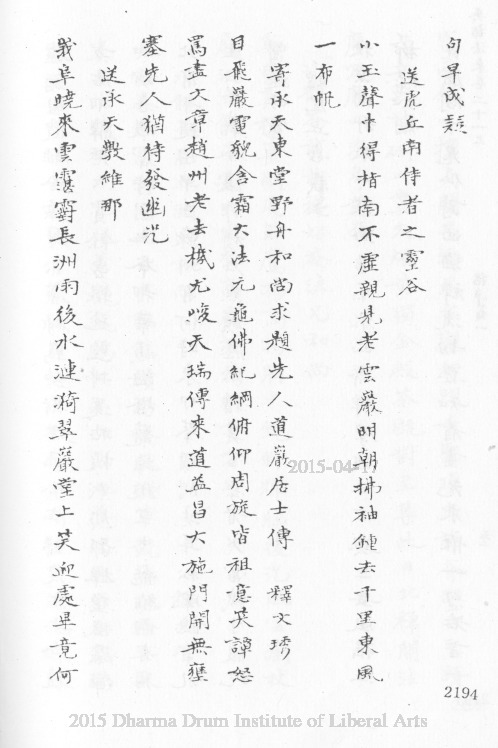 句早成疑
送虎丘南侍者之靈谷
小玉聲中得指南不虛親見老雲巖明朝拂袖鍾去千里東風
一布帆
寄承天東堂野舟和尚求題先人道巖居士傳 釋文琇
目飛巖電貌含霜大法元龜佛紀綱俯仰周旋皆祖意英譚怒
罵盡文章趙州老去機尤峻天瑞傳來道益昌大施門開無壅
塞先人猶待發幽光
送承天斅維那
義阜曉來雲靄靄長洲雨後水漣漪翠巖堂上笑迎處畢竟何
2194
2015-04-17
2015 Dharma Drum Institute of Liberal Arts